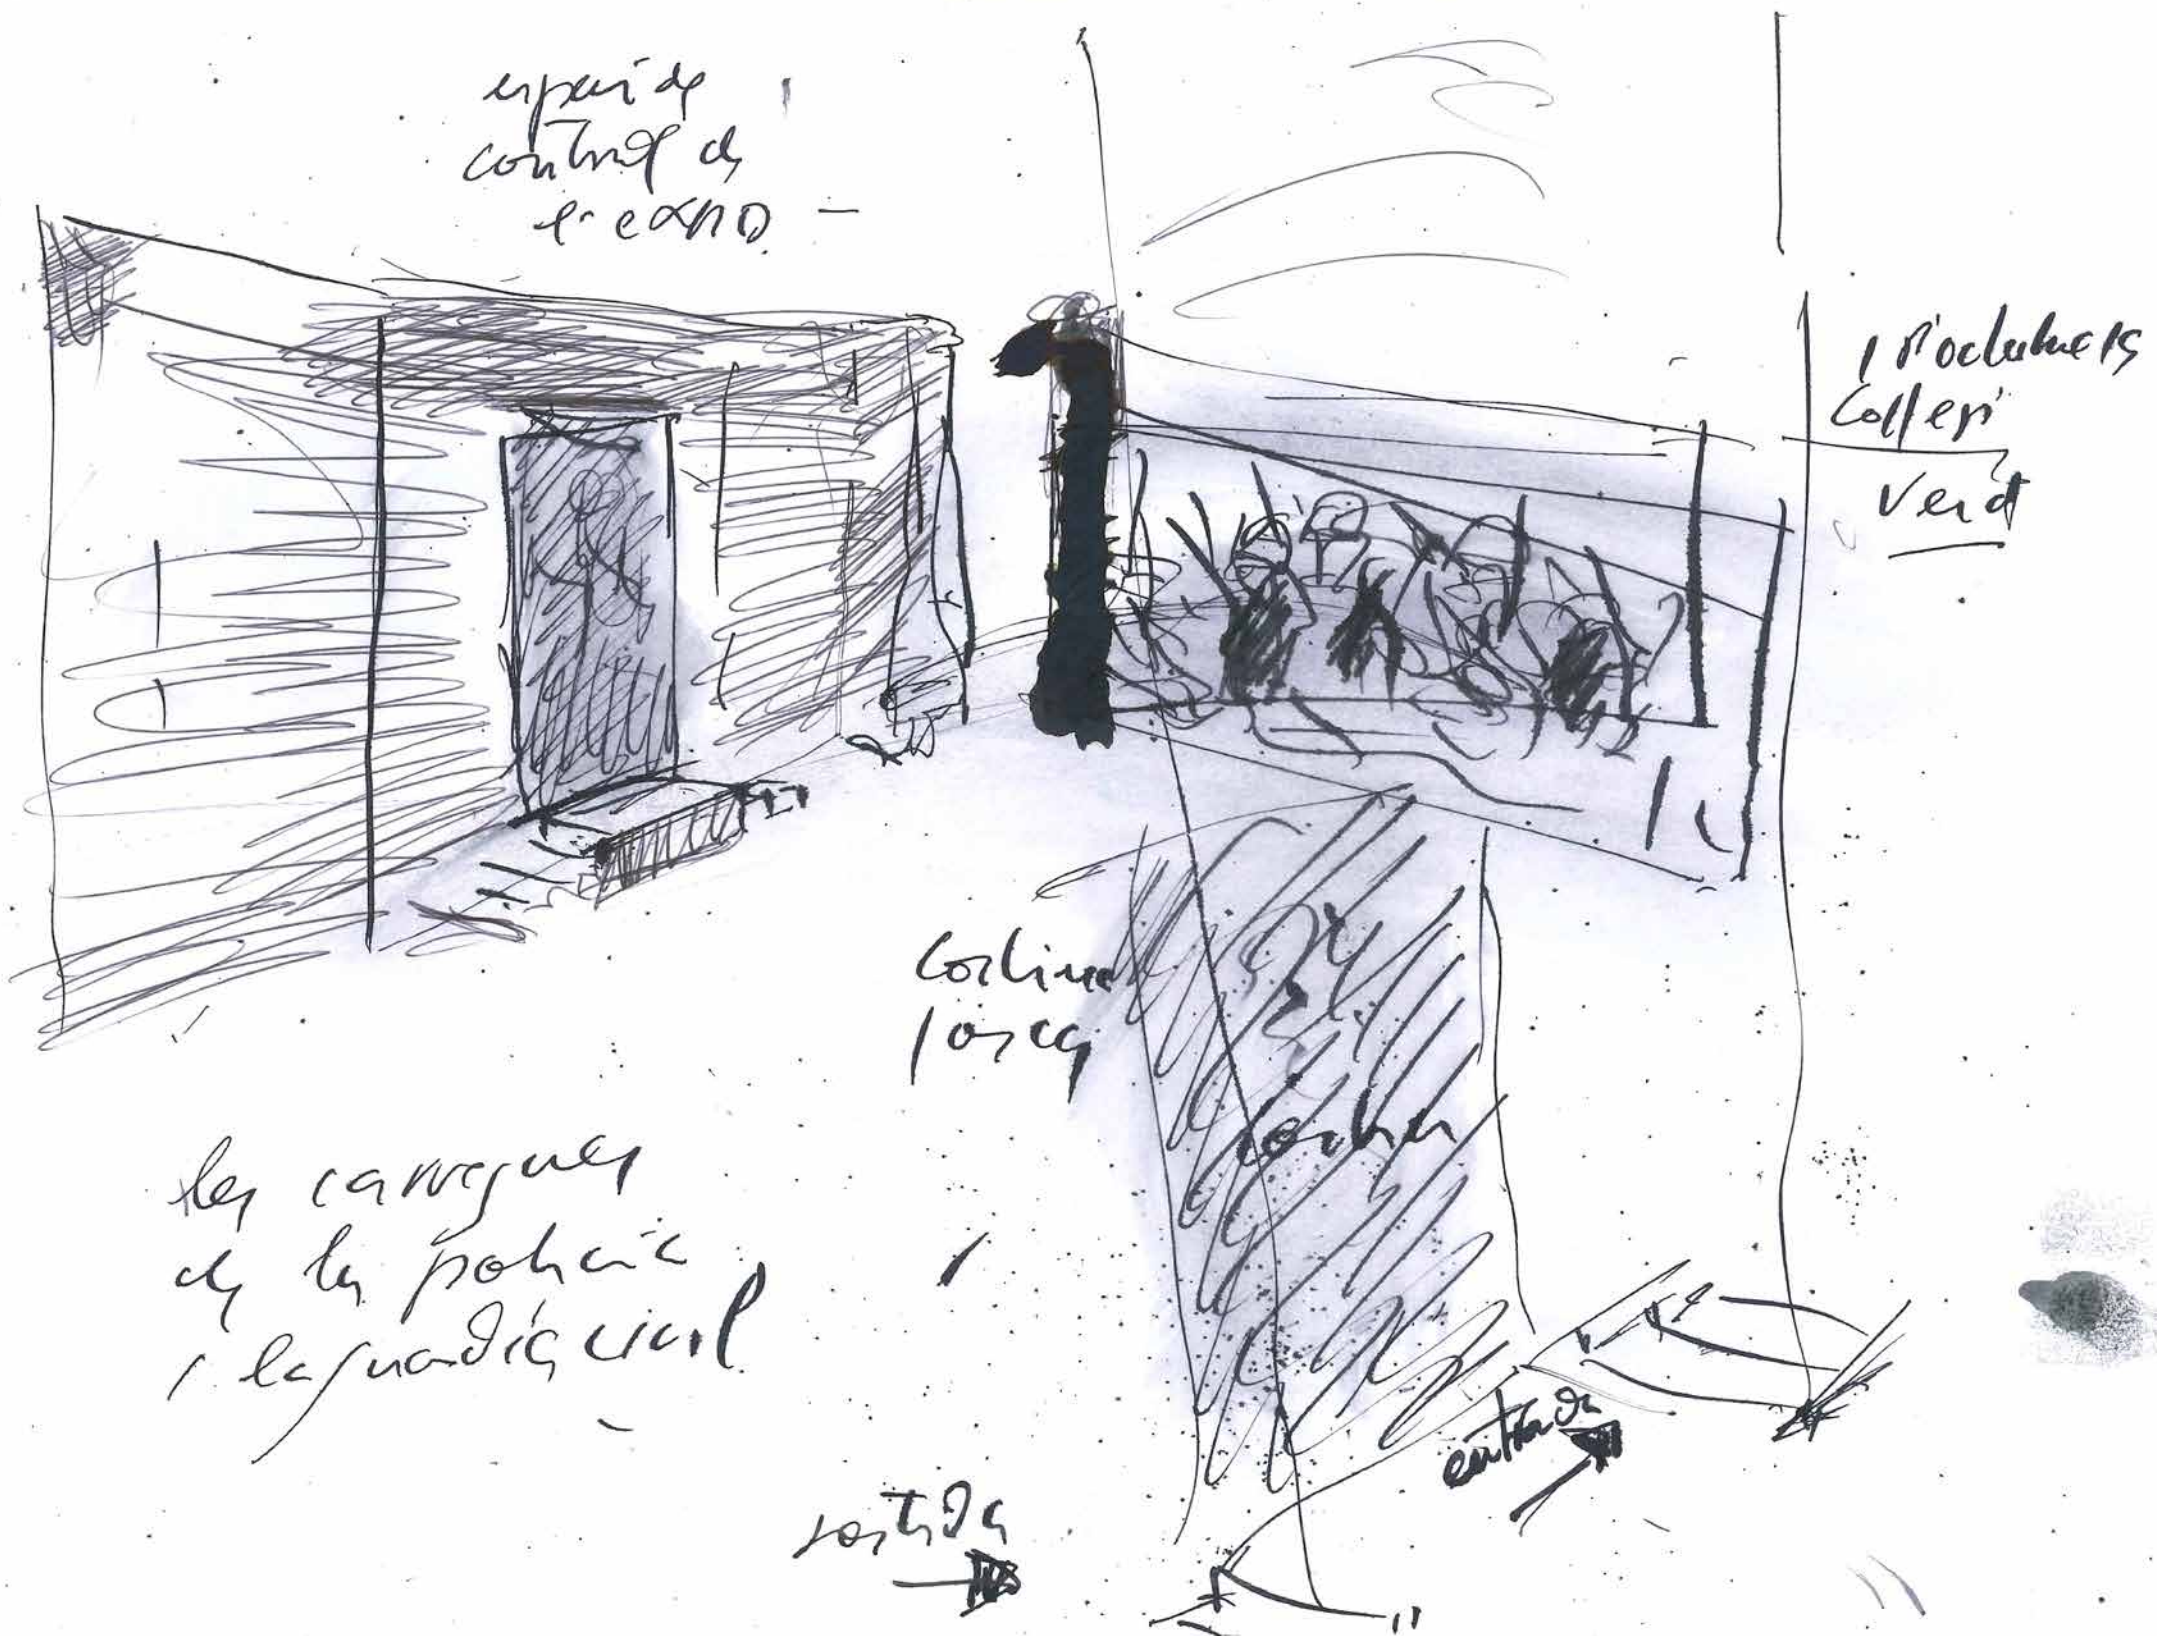 espai de
control de
l'expo
Col·legi
Verd
Cortina
fosca
les carregues
de la policia
i la guardia civil
sortida
entrada